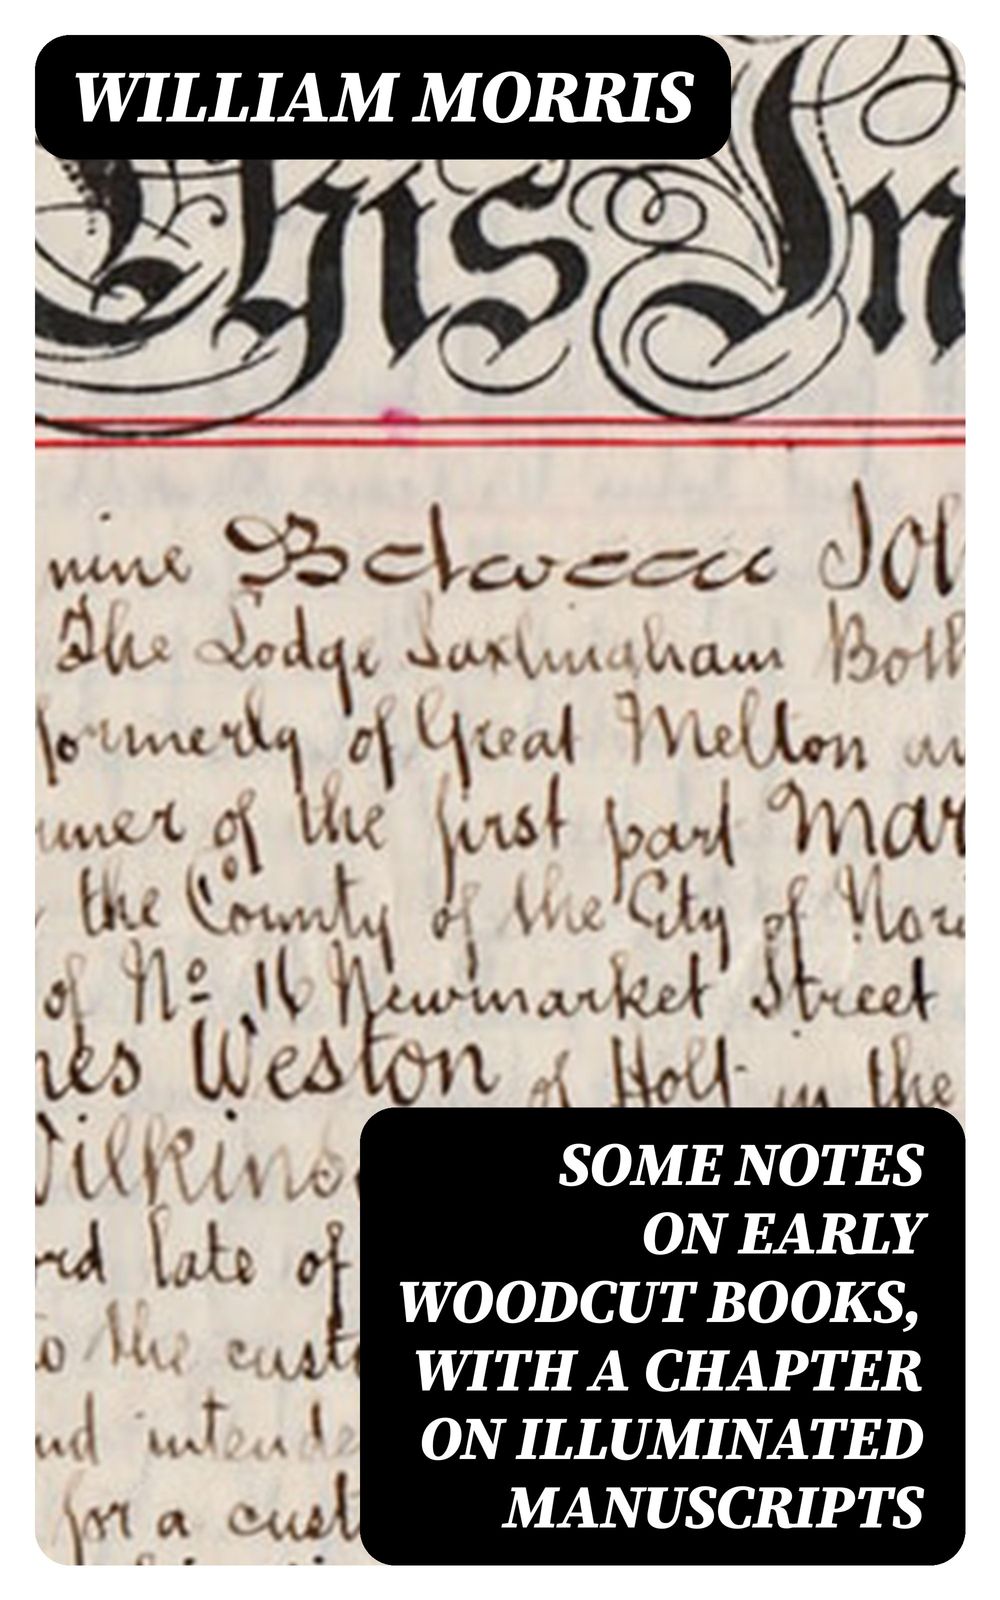 WILLIAM MORRIS
This In
nine Between Joh
The Lodge Saxlingham Both
formerly of Great Melton an
of the first part Mar
the County of the City of Nor
of No. 16 Newmarket Street
Weston of Holt in the
late of
to the cust
intende
for a cust
SOME NOTES
ON EARLY
WOODCUT BOOKS,
WITH A CHAPTER
ON ILLUMINATED
MANUSCRIPTS